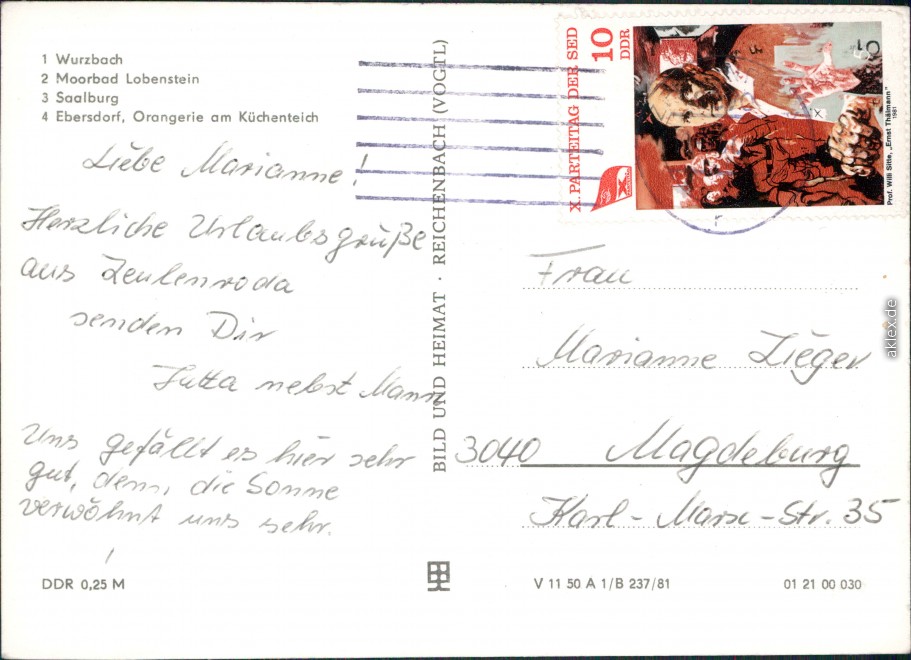 1 Wurzbach
2 Moorbad Lobenstein
3 Saalburg
4 Ebersdorf, Orangerie am Küchenteich
Liebe Marianne!
Herzliche Urlaubsgrüße
aus Zeulenroda
senden Dir
Jutta nebst Mann
Uns gefällt es hier sehr
gut, denn, die Sonne
verwöhnt uns sehr.
DDR 0,25 M
BILD UND HEIMAT · REICHENBACH (VOGTL)
X. PARTEITAG DER SED
10
DDR
10
Prof. Willi Sitte, „Ernst Thälmann"
1981
Frau
Marianne Zieger
3040 Magdeburg
Karl-Marx-Str. 35
V 11 50 A 1/B 237/81
01 21 00 030
aklex.de